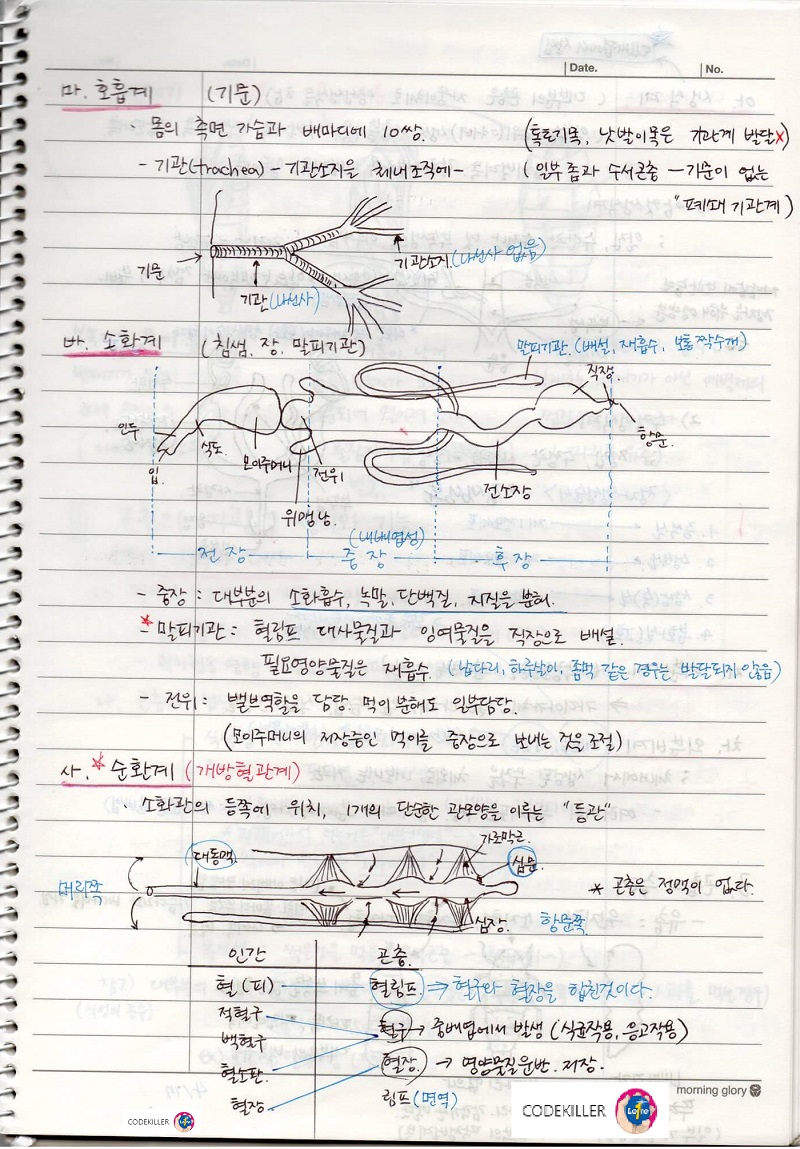 Date. No.
마. 호흡계 (기문)
- 몸의 측면 가슴과 배마디에 10쌍. (톡토기목, 낫발이목은 기관계 발달X)
- 기관(trachea) - 기관소지을 체내조직에- (일부 좀과 수서곤충 - 기문이 없는
"폐쇄 기관계)
기문 기관(나선사) 기관소지.(나선사 없음)
바. 소화계 (침샘, 장, 말피기관) 말피기관.(배설, 재흡수, 보통 짝수개)
직장
인두 식도. 모이주머니 전위 항문.
입. 전소장
위맹낭.
(내배엽성)
전장 중장 후장
- 중장 : 대부분의 소화흡수, 녹말, 단백질, 지질을 분해.
* - 말피기관 : 혈림프 대사물질과 잉여물질을 직장으로 배설.
필요영양물질은 재흡수. (납작리, 하루살이, 좀목 같은 경우는 발달되지 않음)
- 전위 : 밸브역할을 담당. 먹이 분해도 일부담당.
(모이주머니의 저장중인 먹이를 중장으로 보내는 것을 조절)
사. * 순환계 (개방혈관계)
소화관의 등쪽에 위치, 1개의 단순한 관모양을 이루는 "등관"
가로막근.
대동맥. 심문.
머리쪽 * 곤충은 정맥이 없다.
심장. 항문쪽.
인간 곤충.
혈(피) 혈림프 ⇒ 혈구와 혈장을 합친것이다.
적혈구
혈구 → 중배엽에서 발생 (식균작용, 응고작용)
백혈구
혈장. → 영양물질운반. 저장.
혈소판.
림프(면역)
혈장
morning glory
CODEKILLER CODEKILLER